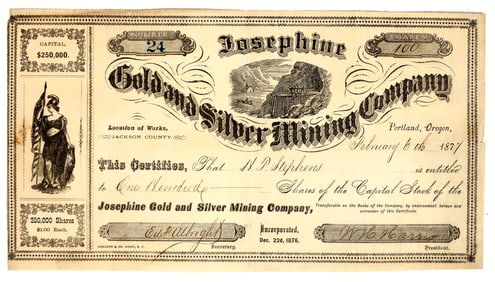 NUMBER
24
Josephine
SHARES
100
CAPITAL
$250,000.
Gold and Silver Mining Company
Location of Works,
JACKSON COUNTY.
Portland, Oregon,
February 6th 1877
This Certifies, That H. P. Stephens is entitled
to One Hundred Shares of the Capital Stock of the
Josephine Gold and Silver Mining Company,
Transferable on the Books of the Company, by endorsement hereon and
surrender of this Certificate.
250,000 Shares
$1.00 Each.
Incorporated,
Dec. 22d, 1876.
Edw Albright
Secretary.
President.